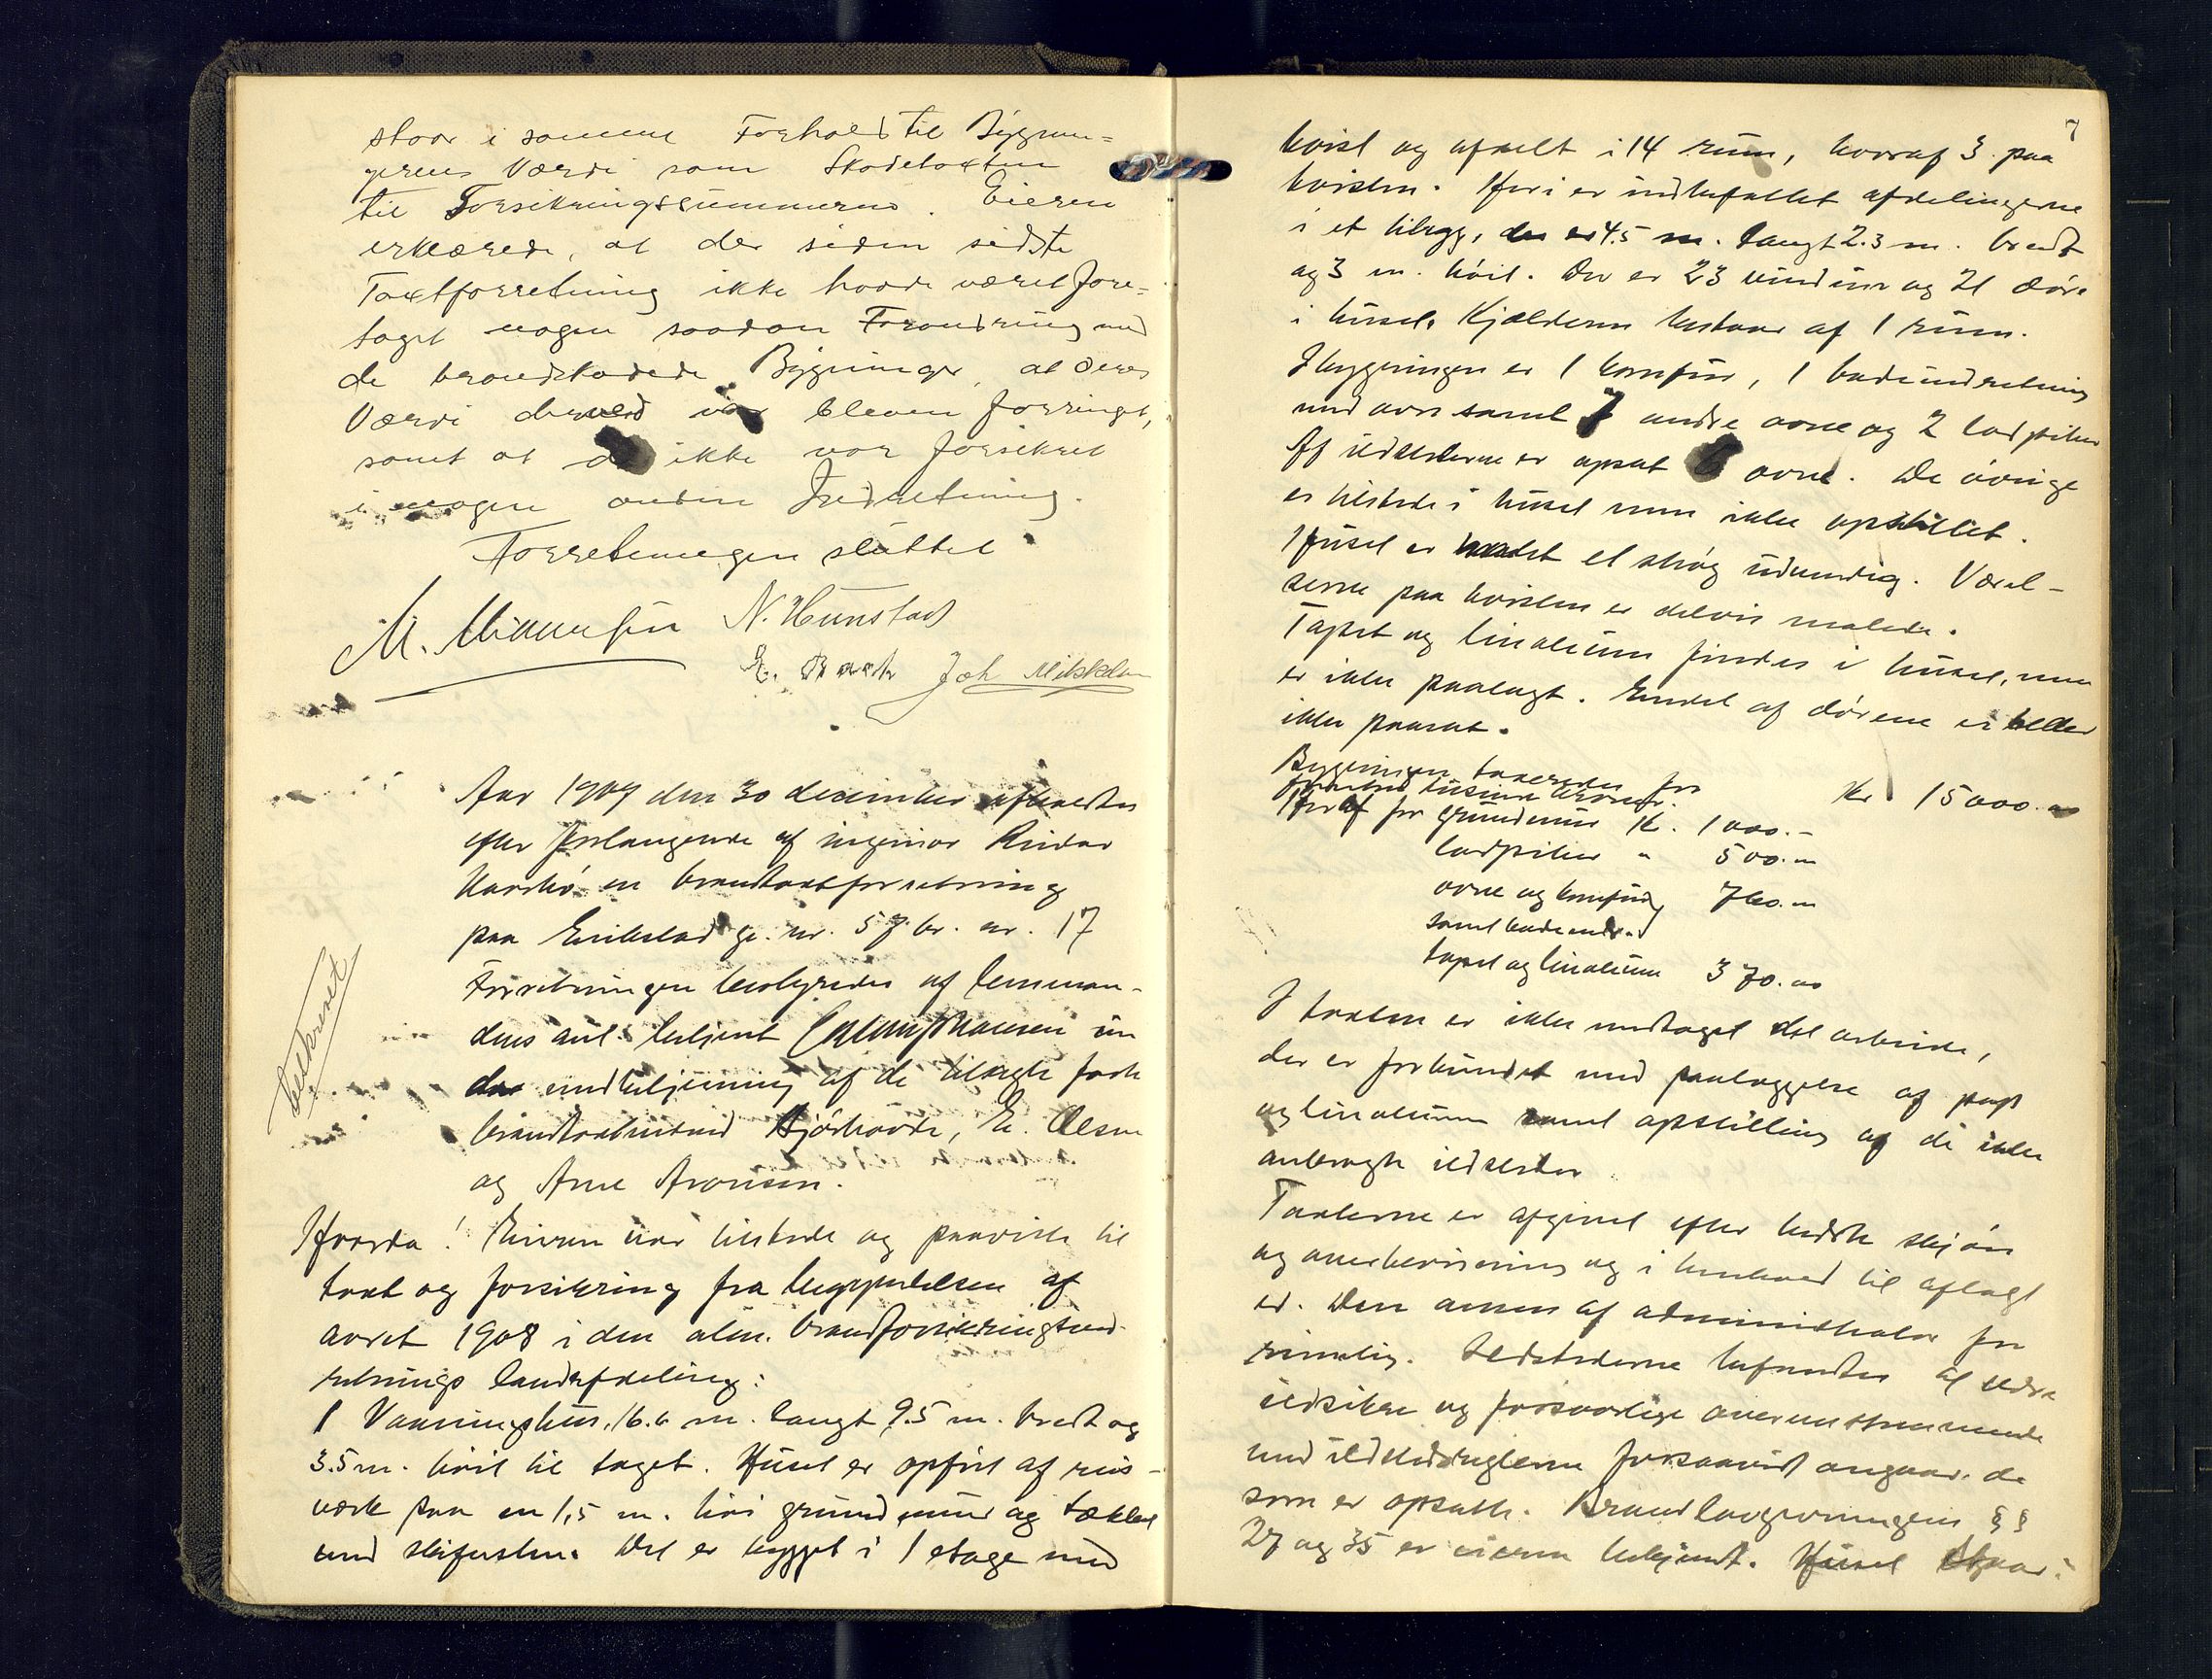 staar i samme Forhold til Bygnin=
gernes Værdi som Skadetaxten
til Forsikringssummerne. Eieren
erklærede, at der siden sidste
Taxtforretning ikke havde været fore=
taget nogen saadan Forandring med
de brandskadede Bygninger, at deres
Værdi derved var bleven forringet,
samt at de ikke var forsikret
i nogen anden Indretning.
Forretningen sluttet
N. Hunstad
Joh Mikkelsen
Aar 1909 den 30 december afholdtes
efter forlangende af ingeniør Reidar
en brandtaxtforretning
paa Erikstad g. nr. 57 br. nr. 17
Forretningen bestyredes af lensman-
dens aut. betjent un
der medbetjening af de tilsagte faste
brandtaxtmænd Hjørhövde, E. Olsen
og Arne Aronsen.
Hvorda! Eieren var tilstede og paaviste til
taxt og forsikring fra begyndelsen af
aaret 1908 i den alm. brandforsikringsind-
retnings landafdeling:
1 Vaaningshus, 16.6 m. langt 9.5 m. bredt og
3.5 m. höit til taget. Huset er opfört af reis-
værk paa en 1,5 m. höi grundmur og tækket
med skifersten. Det er bygget i 1 etage med
betkrevet
7
kvist og afdelt i 14 rum, hvoraf 3 paa
kvisten. Heri er indbefattet afdelingerne
i et tilbygg, der er 4.5 m. langt 2.3 m. bredt
og 3 m. höit. Der er 23 vinduer og 21 döre
i huset. Kjælderen bestaar af 1 rum.
I bygningen er 1 komfur, 1 badeindretning
med ovn samt 7 andre ovne og 2 ladpiber
Af ildstederne er opsat 6 ovne. De övrige
er tilstede i huset men ikke opstillet.
Huset er malet et strög udvendig. Værel-
serne paa kvisten er delvis malede.
Tapet og linoleum findes i huset, men
er ikke paalagt. Endel af dörene er heller
ikke paasat.
Bygningen taxeredes for
femten tusinde kroner. Kr 15000.00
Heraf for grundmur K. 1000.-
ladpiber " 500.00
ovne og komfur 760.00
samt badeindr.
tapet og linoleum 370.00
I taxten er ikke medtaget det arbeide,
der er forbundet med paalæggelse af pap
og linoleum samt opstilling af de ikke
anbragte ildsteder
Taxterne er afgivet efter bedste skjön
og overbevisning og i henhold til aflagt
ed. Den ansees af administrator for
rimelig. Ildstederne befandtes at være
ildsikre og forsvarlige overensstemmende
med ildstedsreglerne forsaavidt angaar de
som er opsatte. Brandlovgivningens § §
27 og 35 er eieren bekjendt. Huset staar i